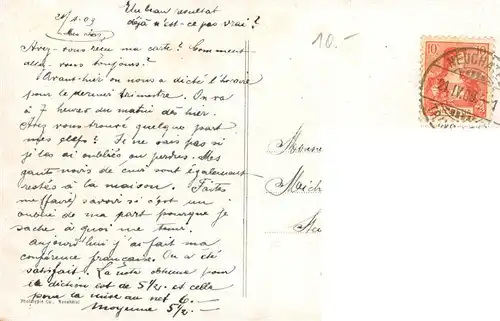 21/4.09
Un beau resultat
déjà n'est-ce pas vrai?
10.-
Avez-vous reçu ma carte? Comment
allez-vous toujours?
Avant-hier on nous a dicté l'horaire
pour le premier trimestre. On va
à 7 heures du matin dès hier.
Avez vous trouvé quelque part
mes? Je ne sais pas si
je les ai oubliés ou perdres. Mes
gants noirs de cuir sont également
restés à la maison. Faites
me (faire) savoir si c'est un
oublie de ma part pourque je
sache à quoi me tenir.
Aujourd'hui j'ai fait ma
conférence française. On a été
satisfait. La note obtenue pour
la diction est de 5½ et celle
pour la mise au net 6.—
Moyenne 5½.—
Phototypie Co., Neuchâtel
10
NEUCH
21.IV.09